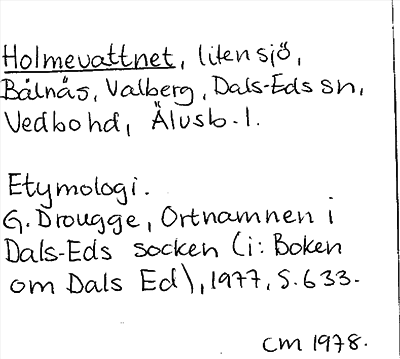 Holmevattnet, liten sjö,
Bålnäs, Valberg, Dals-Eds sn,
Vedbo hd, Älvsb. l.
Etymologi.
G. Drougge, Ortnamnen i
Dals-Eds socken (i: Boken
om Dals Ed), 1977, s. 633.
CM 1978.